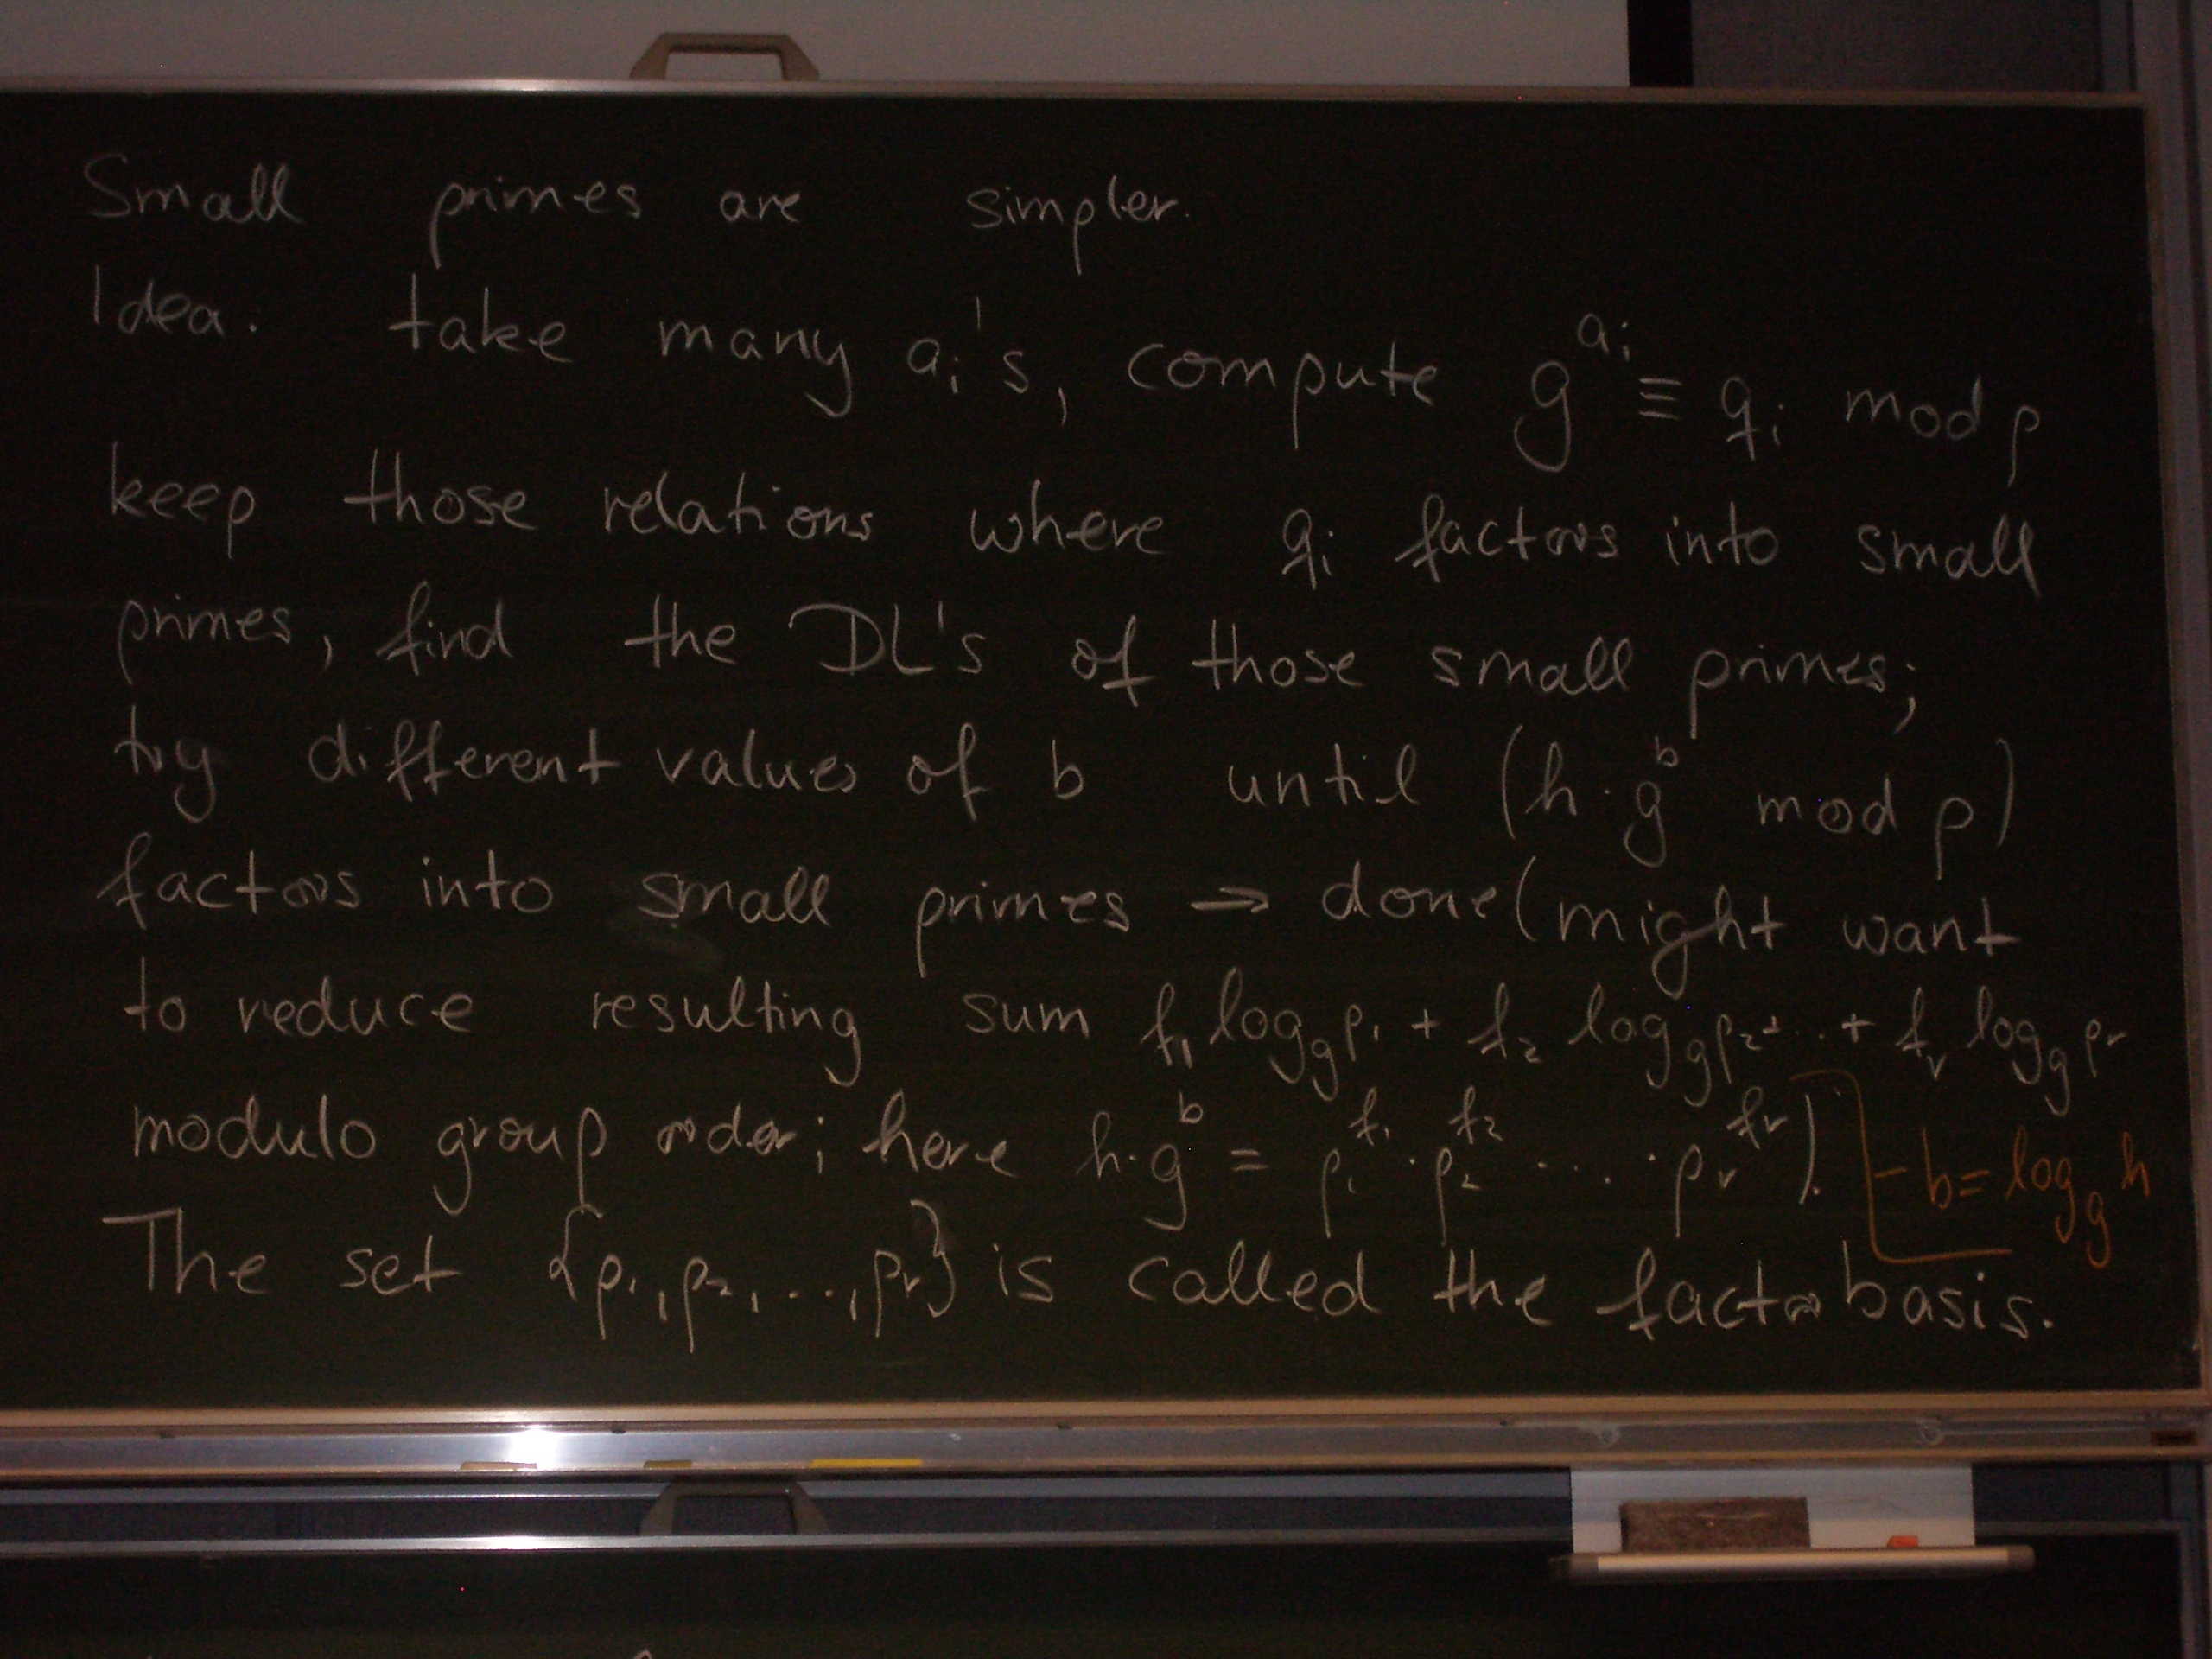 Small primes are simpler.
Idea. take many aᵢ's, compute g^{aᵢ} ≡ qᵢ mod p
keep those relations where qᵢ factors into small
primes, find the DL's of those small primes;
try different values of b until (h·g^b mod p)
factors into small primes → done (might want
to reduce resulting sum f₁ log_g p₁ + f₂ log_g p₂ + ... + f_r log_g p_r
modulo group order; here h·g^b = p₁^{f₁} · p₂^{f₂} · ... · p_r^{f_r}).
- b = log_g h
The set {p₁, p₂, ..., p_r} is called the factor basis.